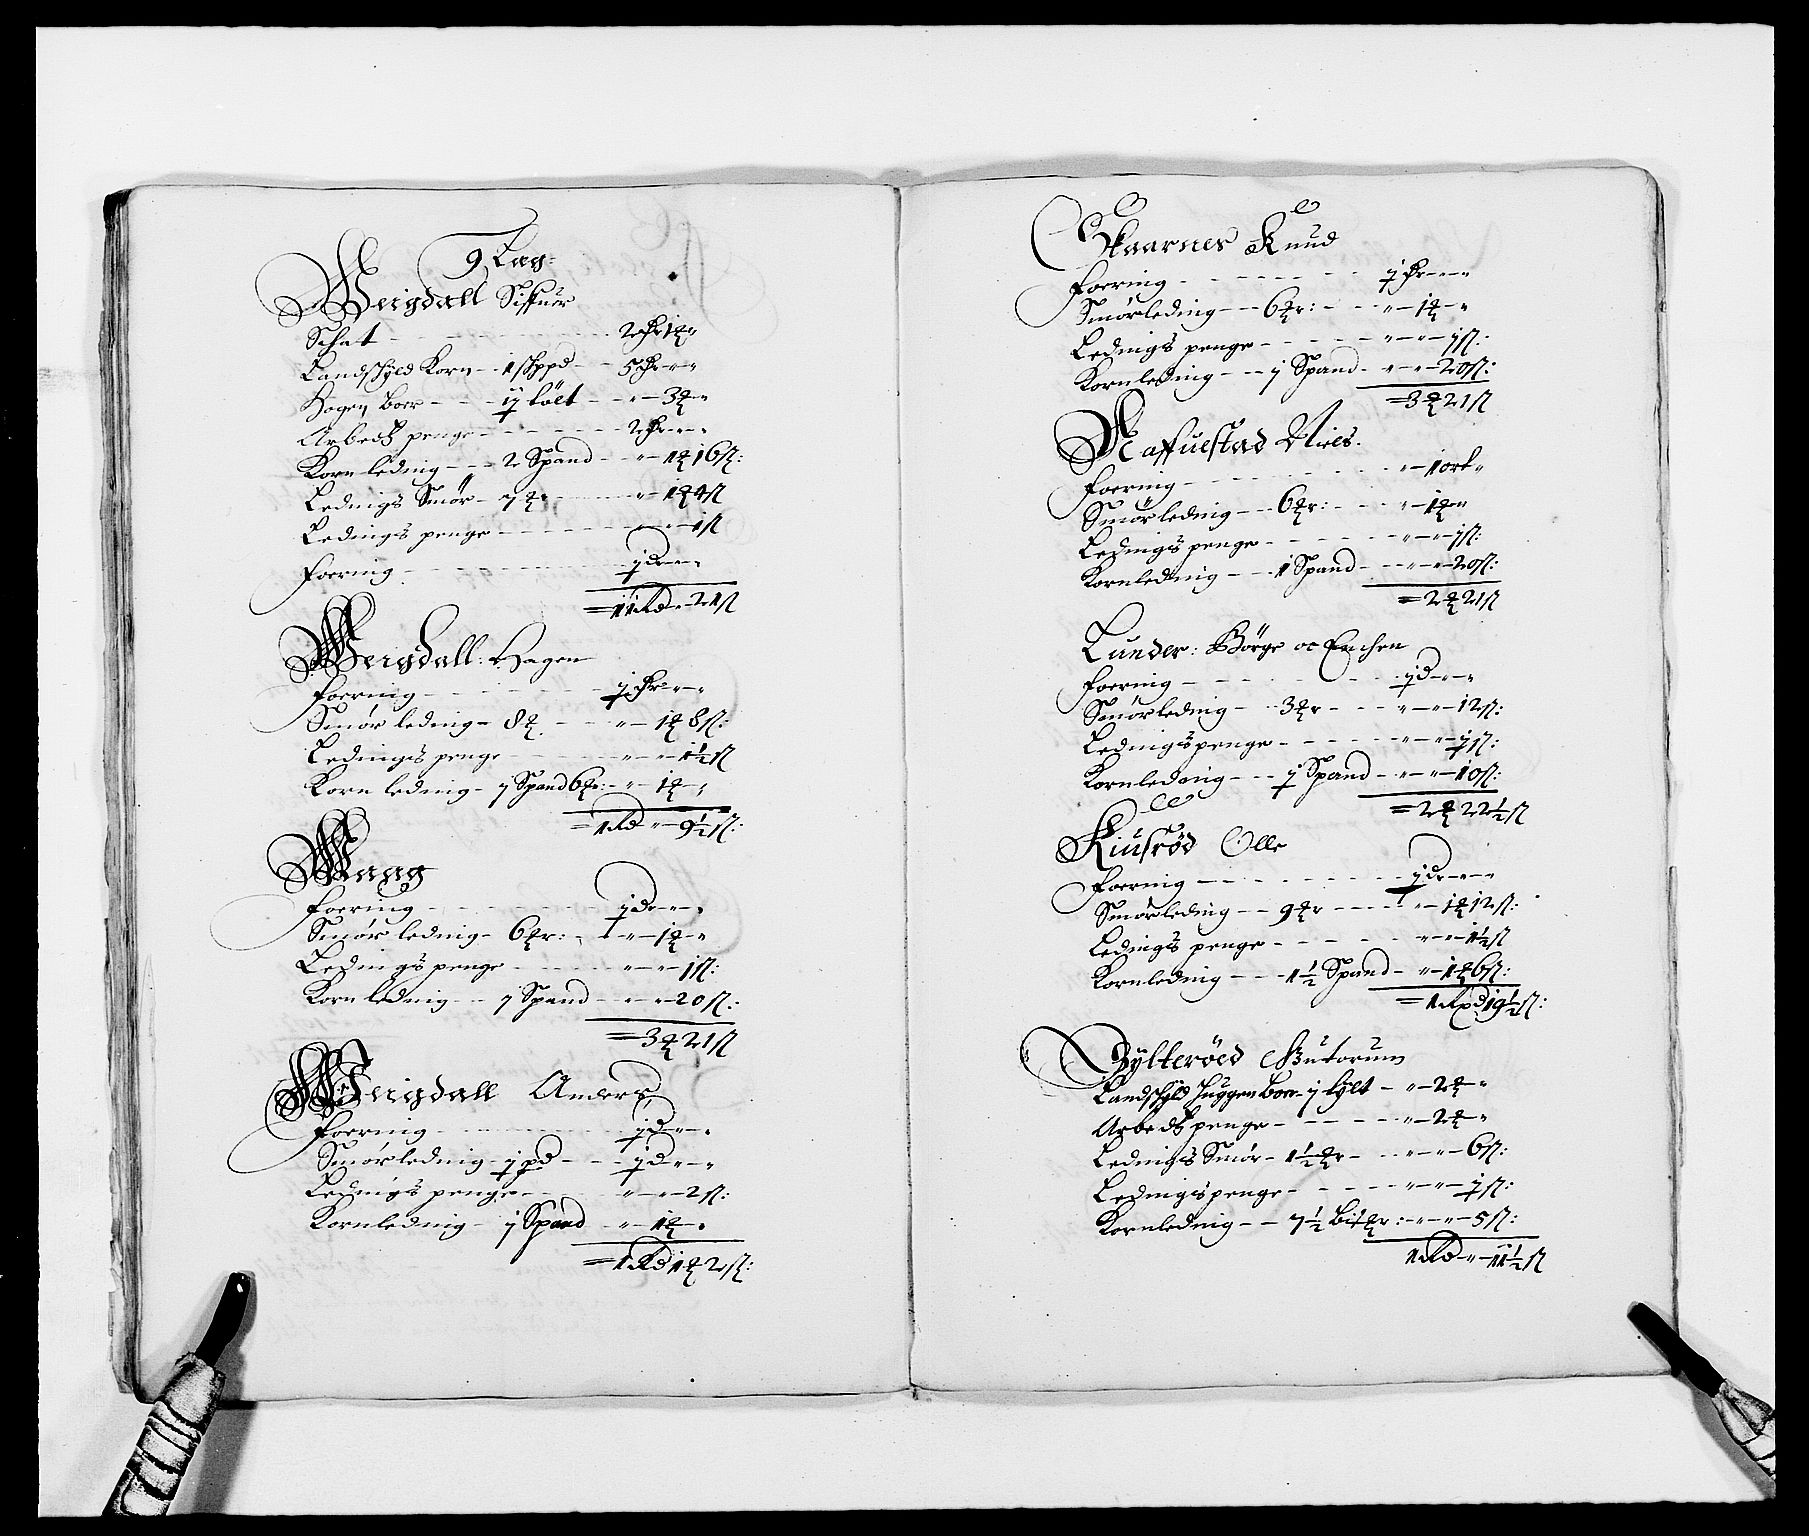 9 Lag:
Wergdall Siffuer
Schat - - - 2 dr 1 ₰ "
Landschyld Korn - 1 schppd - - 5 dr - " - "
Hogen boer - - ½ bølt - - " - 3 ₰ - "
Arbedtz penge - - - 2 dr - " - "
Korn leding - - 2 Spand - - " - 1 ₰ 16 ß:
Ledings Smør - 7 ₰r - - " - 1 ₰ 4 ß
Ledings penge - - - " - " - 1 ß
foering - - - ½ dr - " - "
= 11 Rd - " - 21 ß
Wergdall: Hagen
foering - - - ½ dr - " - "
Smør leding - 8 ₰ - - " - 1 ₰ 8 ß:
Ledings penge - - - " - " - 1½ ß
Korn leding - 1 Spand 6 ₰r: - " - 1 ₰ - "
= 1 Rd - " - 9½ ß:
Waag
foering - - - ½ dr - " - "
Smør leding - 6 ₰r: - - " - 1 ₰ - "
Ledings penge - - - " - " - 1 ß:
Korn leding - - 1 Spand - - " - " - 20 ß:
= 3 ₰ 21 ß
Wergdall Anders
foering - - - ½ d - " - "
Smørleding - ½ pd - - ½ d - " - "
Ledings penge - - " - " - 2 ß:
Kornleding - 1 Spand - " - 1 ₰ - "
= 1 Rd 1 ₰ 2 ß:
Skaarnes Knud
foering - - - ½ dr - " - "
Smørleding - - 6 ₰r: - - " - 1 ₰ - "
Ledings penge - - - " - " - 1 ß:
Kornleding - - 1 Spand - " - " - 20 ß:
= 3 ₰ 21 ß
Raffuelstad Niels.
foering - - - " - 1 ort "
Smørleding - - 6 ₰r: - - " - 1 ₰ "
Ledings penge - - - " - " - 1 ß:
Kornleding - - 1 Spand - - " - " - 20 ß:
= 2 ₰ 21 ß
Lunder: Børge oc Enchen
foering - - - ½ d - " - "
Smørleding - - 3 ₰r - - " - " - 12 ß:
Ledings penge - - - " - " - ½ ß:
Kornleding - - ½ Spand - " - " - 10 ß:
= 2 ₰ 22½ ß
Kiusrød Olle
foering - - - ½ dr - " - "
Smørleding - - 9 ₰r - - " - 1 ₰ 12 ß:
Ledings penge - - - " - " - 1½ ß
Kornleding - - 1½ Spand - " - 1 ₰ 6 ß:
= 1 Rd 19½ ß:
Gylterøed Gutorum
Landschyld Huggen boer - 1 bylt - " - 2 ₰ - "
Arbedtz penge - - - " - 2 ₰ - "
Ledings Smør - 1½ ₰r - - " - " - 6 ß:
Ledings penge - - - " - " - ½ ß:
Kornleding - - 7½ Bis₰r: - " - " - 5 ß:
1 Rd - " - 11½ ß